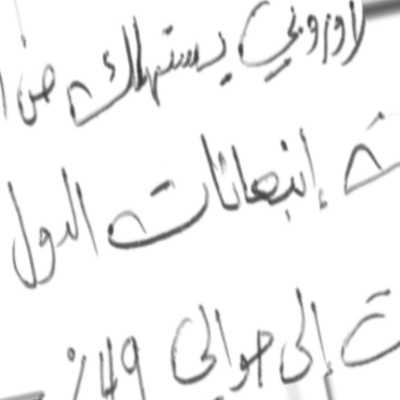 لاوروبي يستهلك من
ت إنبعاثات الدول
ت إلى حوالي 49%